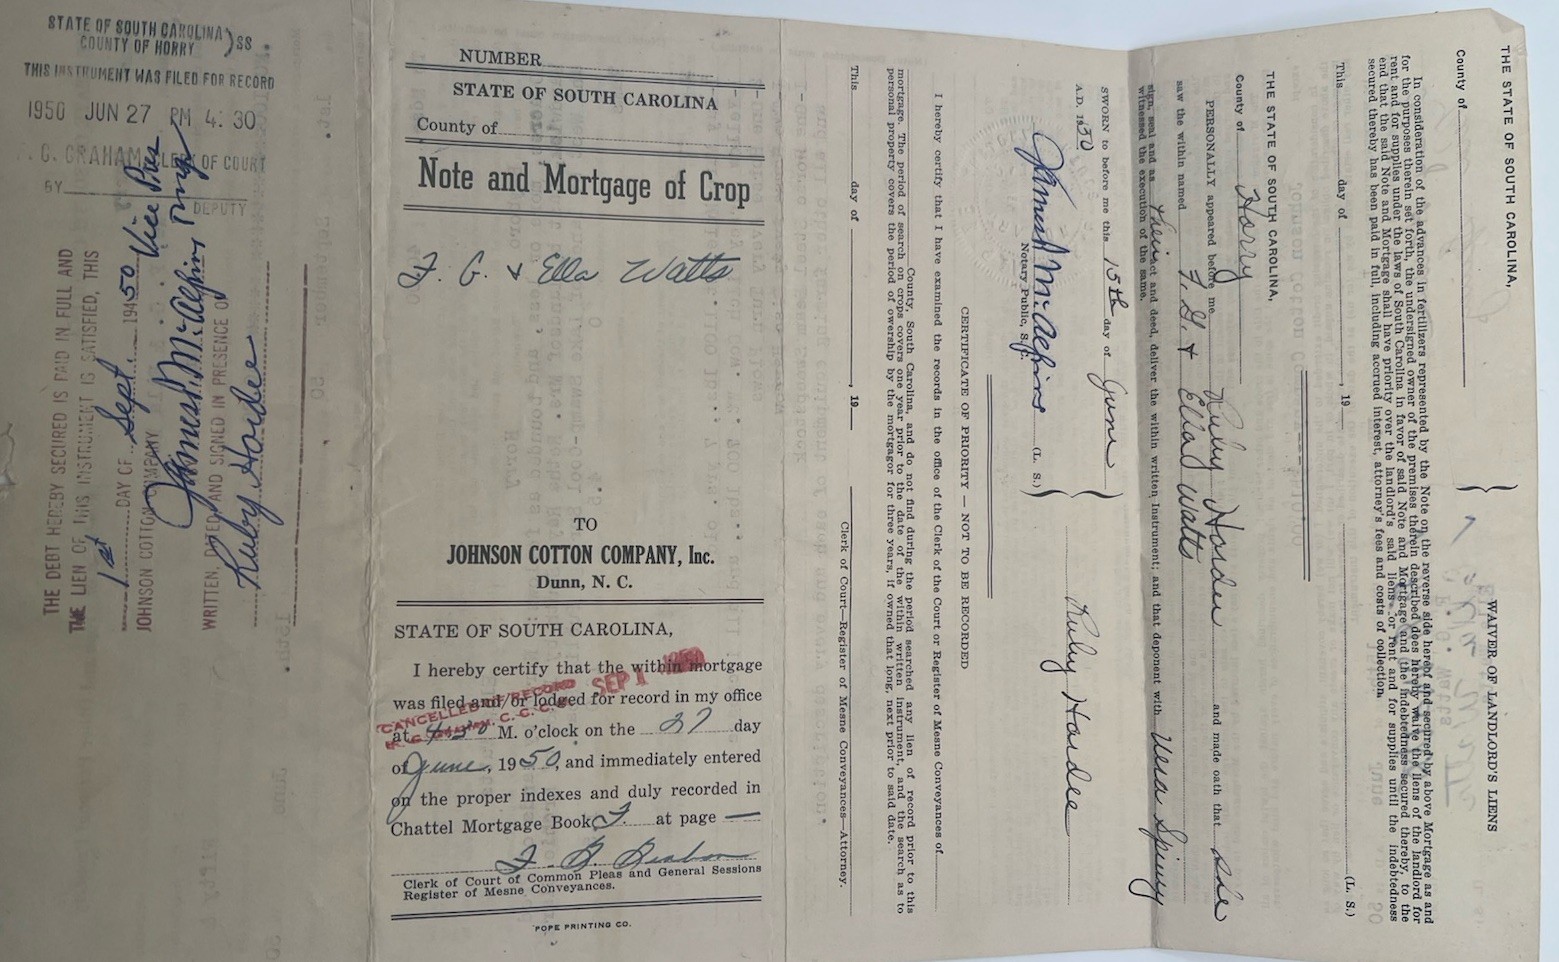 STATE OF SOUTH CAROLINA) SS
COUNTY OF HORRY
THIS INSTRUMENT WAS FILED FOR RECORD
1950 JUN 27 PM 4:30
. G. GRAHAM CLERK OF COURT
BY
DEPUTY
THE DEBT HEREBY SECURED IS PAID IN FULL AND
THE LIEN OF THIS INSTRUMENT IS SATISFIED, THIS
1st DAY OF Sept. 1950
JOHNSON COTTON COMPANY
Vice Pres
WRITTEN, DATED AND SIGNED IN PRESENCE OF
Ruby Hardee
NUMBER
STATE OF SOUTH CAROLINA
County of
Note and Mortgage of Crop
F. G. & Ella Watts
TO
JOHNSON COTTON COMPANY, Inc.
Dunn, N. C.
STATE OF SOUTH CAROLINA,
I hereby certify that the within mortgage
was filed and/or lodged for record in my office
at 4:30 M. o'clock on the 27 day
of June, 1950, and immediately entered
on the proper indexes and duly recorded in
Chattel Mortgage Book at page —
Clerk of Court of Common Pleas and General Sessions
Register of Mesne Conveyances.
POPE PRINTING CO.
CANCELLED RECORD
SEP 1 1950
C. C. C.
THE STATE OF SOUTH CAROLINA,
County of
WAIVER OF LANDLORD'S LIENS
In consideration of the advances in fertilizers represented by the Note on the reverse side hereof and secured by above Mortgage as and
for the purposes therein set forth, the undersigned owner of the premises therein described does hereby waive the liens of the landlord for
rent and for supplies under the laws of South Carolina in favor of said Note and Mortgage and the indebtedness secured thereby, to the
end that the said Note and Mortgage shall have priority over the landlord's said liens for rent and for supplies until the indebtedness
secured thereby has been paid in full, including accrued interest, attorney's fees and costs of collection.
This day of , 19
(L. S.)
THE STATE OF SOUTH CAROLINA,
County of Horry
PERSONALLY appeared before me Ruby Hardee and made oath that she
saw the within named F. G. & Ella Watts
sign, seal and as their act and deed, deliver the within written Instrument; and that deponent with
witnessed the execution of the same.
SWORN to before me this 15th day of June
A.D. 1950
Ruby Hardee
(L. S.)
Notary Public, S. C.
CERTIFICATE OF PRIORITY — NOT TO BE RECORDED
I hereby certify that I have examined the records in the office of the Clerk of the Court or Register of Mesne Conveyances of
County, South Carolina, and do not find during the period searched any lien of record prior to this
mortgage. The period of search on crops covers one year prior to the date of the within written instrument, and the search as to
personal property covers the period of ownership by the mortgagor for three years, if owned that long, next prior to said date.
This day of , 19
Clerk of Court—Register of Mesne Conveyances—Attorney.